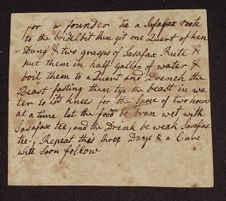 for a founder tie a Sasafax roote
to the bridel bit then git one Quart of hen
Dung & two grasps of Sasafax Roite &
put them in half Gallon of water &
boil them to a Quart and Drench the
Beast fasting then tye the beast in wa
ter to its knees for the Space of two hours
at a time let the food be bran wet with
Sasafax tee, and the Drink be weak Sasafax
tee, Repeat this three Days & a Cure
will soon follow